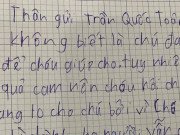 Thân gửi Trần Quốc Toản
không biết là chú đa
để cháu giúp cho. tuy nhiê
quả cam nên cháu hái ch
ang 10 cho chú bởi vì (hố
người vẫn